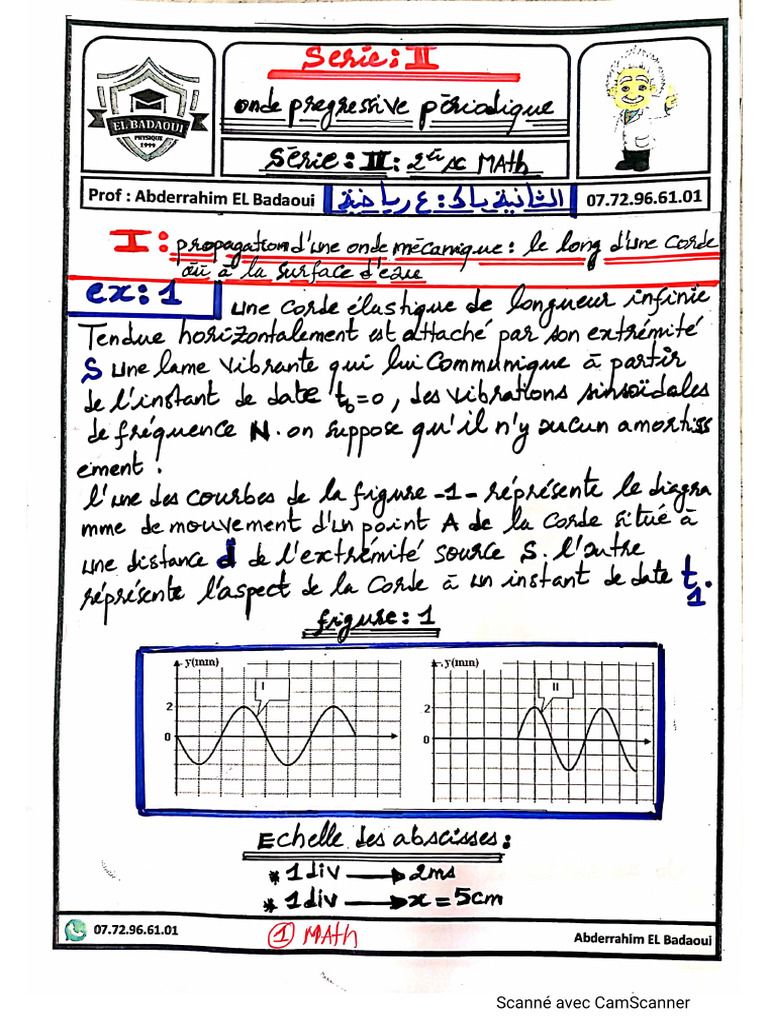 Serie: II
EL BADAOUI
PHYSIQUE
1999
onde progressive périodique
Série: II: 2ème SC MATH
Prof : Abderrahim EL Badaoui
الثانية باك: ع رياضية
07.72.96.61.01
I: propagation d'une onde mécanique: le long d'une corde
ou à la surface d'eau
ex: 1
une corde élastique de longueur infinie
Tendue horizontalement est attaché par son extrémité
S une lame vibrante qui lui communique à partir
de l'instant de date t₀=0, des vibrations sinsoïdales
de fréquence N. on suppose qu'il n'y aucun amortiss
ement.
L'une des courbes de la figure -1- réprésente le diagra
mme de mouvement d'un point A de la corde situé à
une distance d de l'extrémité source S. l'autre
réprésente l'aspect de la corde à un instant de date t₁.
figure: 1
y(mm)
I
2
0
y(mm)
II
2
0
Echelle des abscisses:
* 1 div → 2ms
* 1 div → x = 5cm
07.72.96.61.01
1 MATH
Abderrahim EL Badaoui
Scanné avec CamScanner